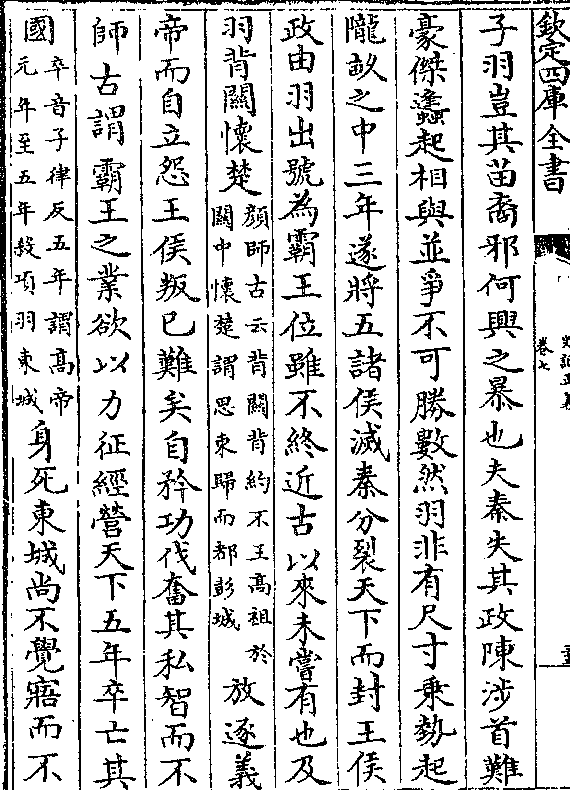 欽定四庫全書
史記正義
卷七
子羽豈其苗裔邪何興之暴也夫秦失其政陳涉首難
豪傑蠭起相與並爭不可勝數然羽非有尺寸乗勢起
隴畝之中三年遂將五諸侯滅秦分裂天下而封王侯
政由羽出號為霸王位雖不終近古以來未嘗有也及
羽背闗懷楚
顔師古云背闗背約不王髙祖於
闗中懷楚謂思東歸而都彭城
放逐義
帝而自立怨王侯叛已難矣自矜功伐奮其私智而不
師古謂霸王之業欲以力征經營天下五年卒亡其
國
卒音子律反五年謂髙帝
元年至五年殺項羽東城
身死東城尚不覺寤而不